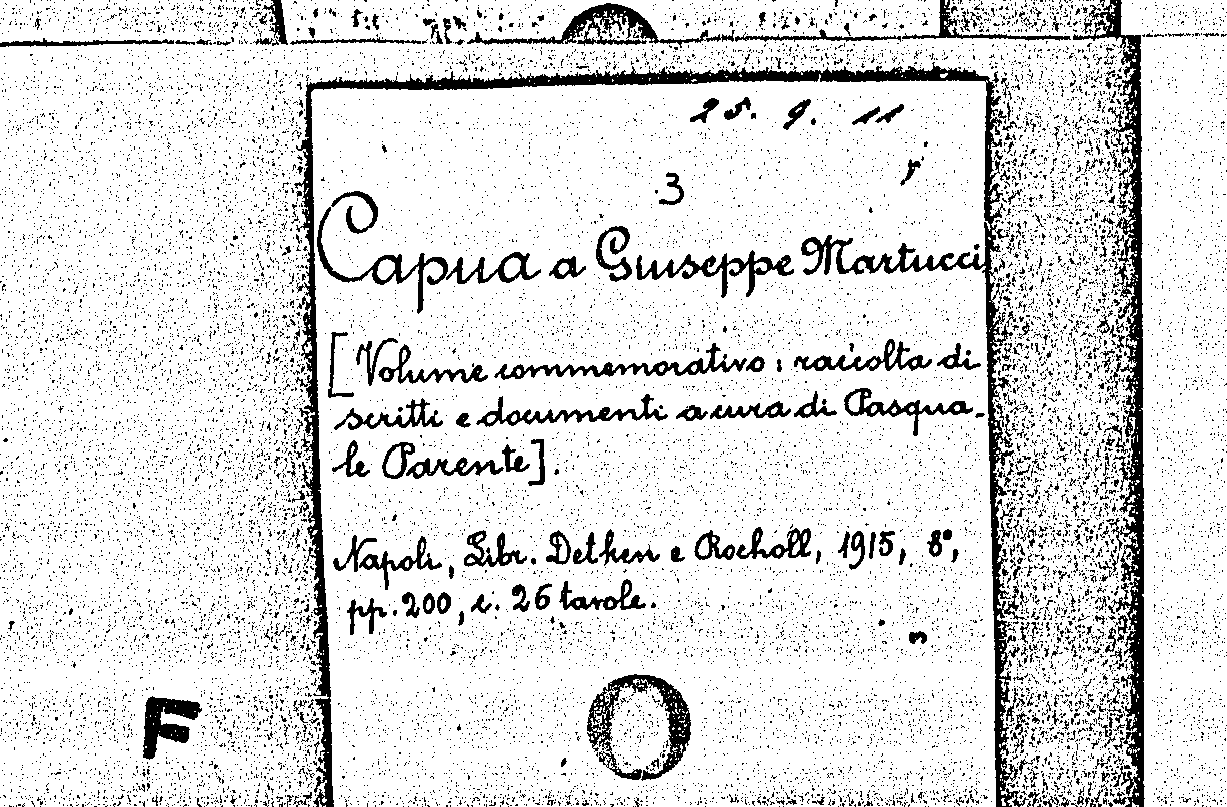 25. 9. 11
3
Capua a Giuseppe Martucci
[Volume commemorativo: raccolta di
scritti e documenti a cura di Pasqua-
le Parente].
Napoli, Libr. Detken e Rocholl, 1915, 8°,
pp. 200, c. 26 tavole.
F